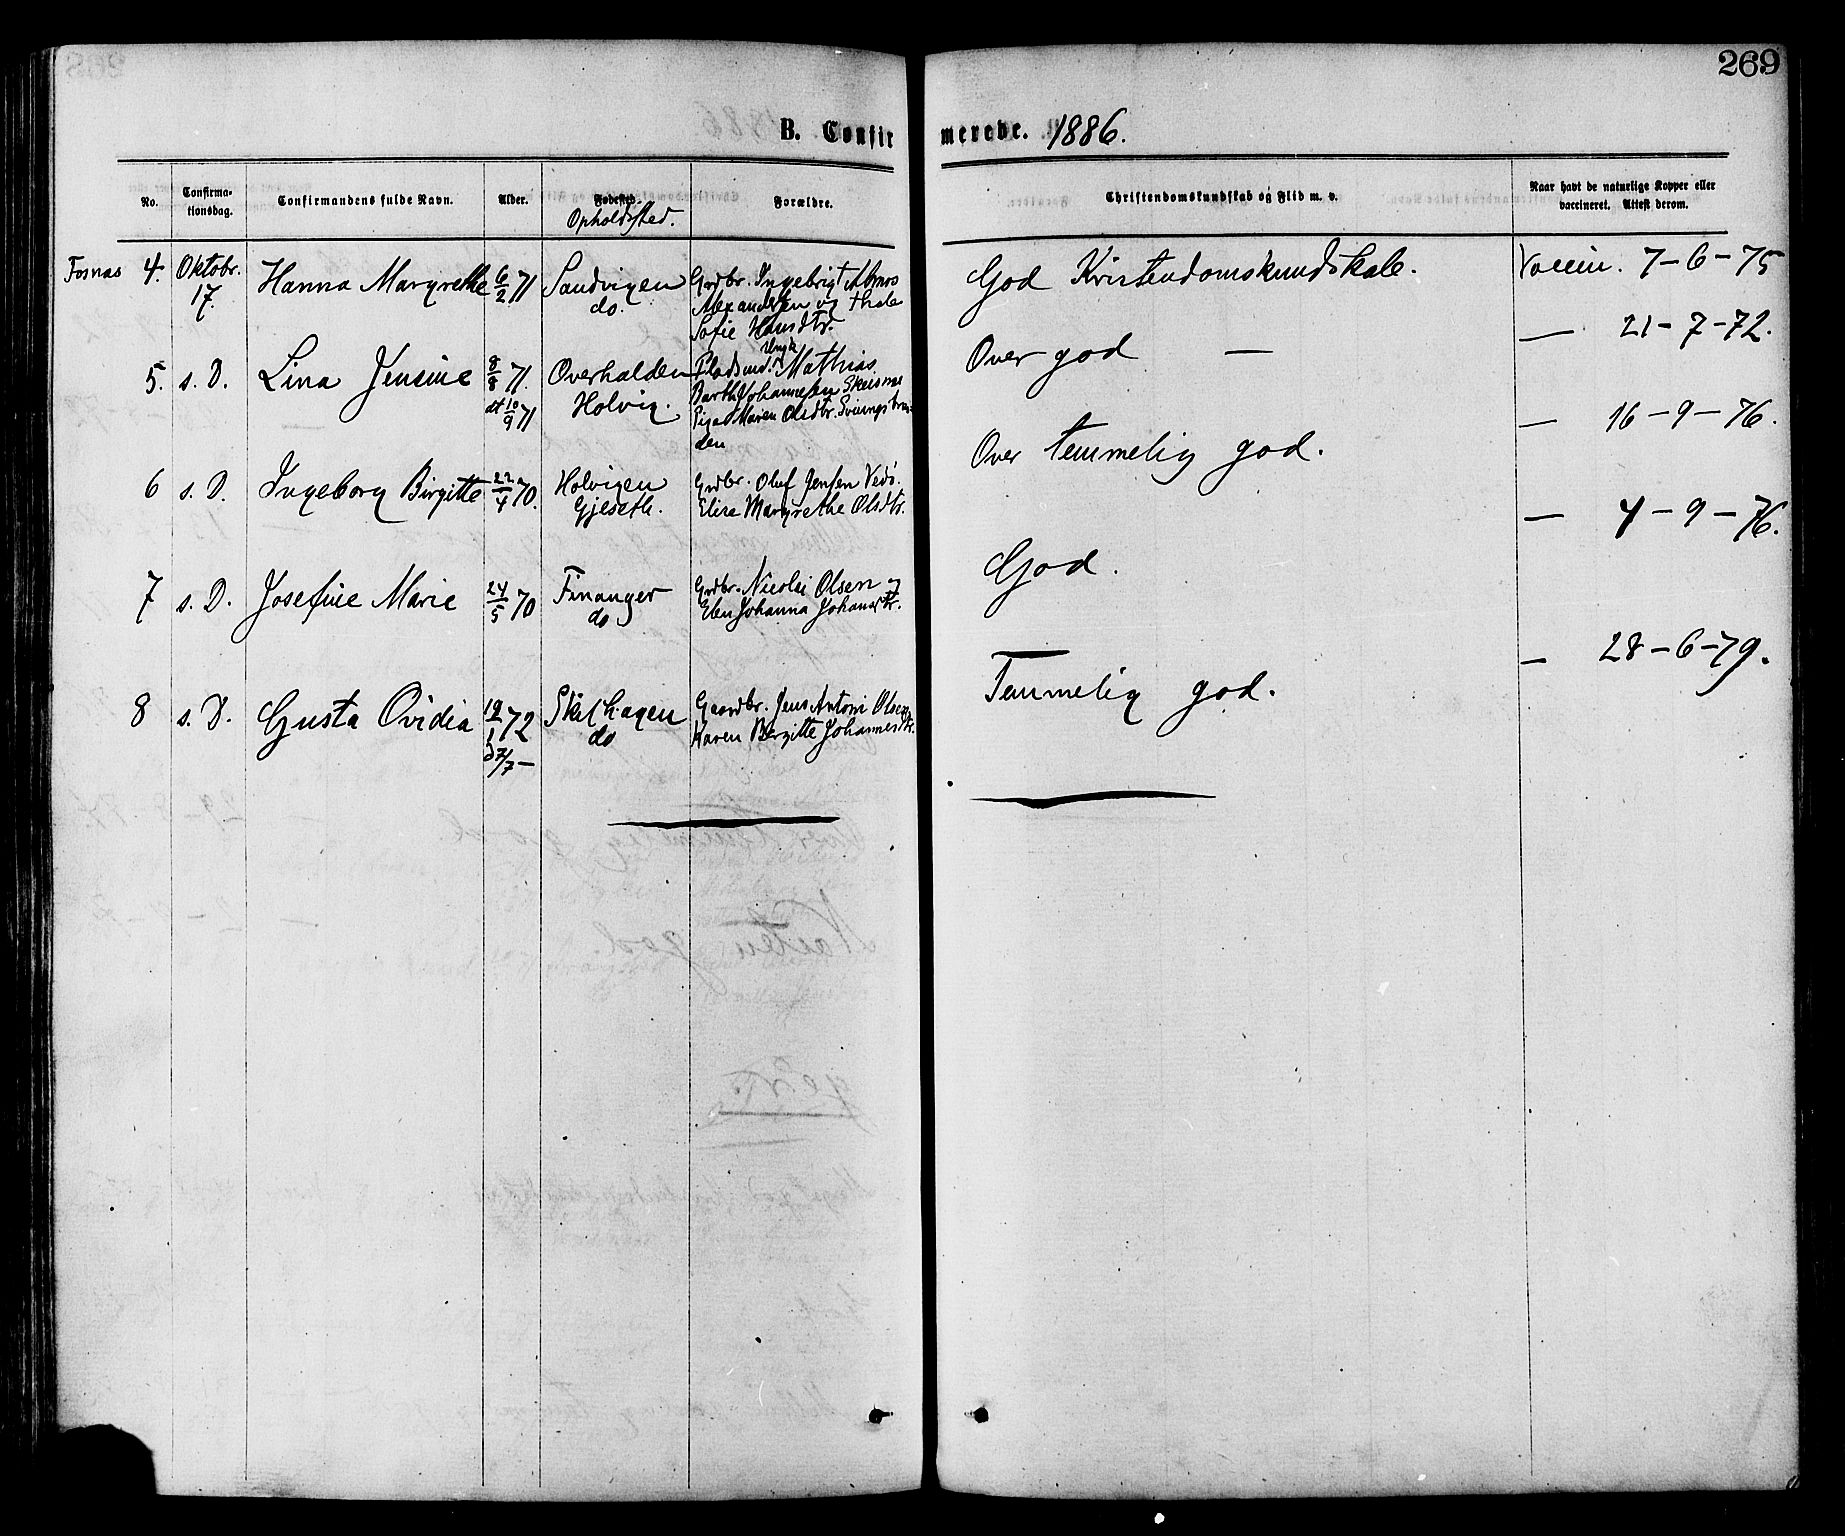 269
B. Confirmerede. 1886.
No.
Confirmationsdag.
Confirmandens fulde Navn.
Alder.
Fødested.
Opholdssted.
Forældre.
Christendomskundskab og Flid m. v.
Naar havt de naturlige Kopper eller vaccineret. Attest derom.
Fosnas 4. Oktobr. 17. Hanna Margrethe 6/2 71 Sandvigen do. Grdbr. Ingebrigt
Alexandersen og Thale
Sofie Hansdtr.
God Kristendomskundskab. Vaccin. 7-6-75
5. s. D. Lina Jensine 8/8 71. dt 10/9 71 Overhalden Holvig. Ungk.
Pladsmd. Mathias
Barth Johannesen
Pige Maren Olsdtr.
Over god — — 21-7-72.
6 s. D. Ingeborg Birgitte 22/4 70. Holvigen Gjeseth. Grdbr. Oluf Jensen Vedø.
Elisa Margrethe Olsdtr.
Over temmelig god. — 16-9-76.
7 s. D. Josefine Marie 24/5 70 Finanger do Grdbr. Nicolai Olsen og
Elen Johanna Johansdtr.
God. — 4-9-76.
8 s. D. Gusta Ovidia 19/1 72 d 7/7 — Skilhagen do Gaardbr. Jens Antoni Olsen
Karen Bergitte Johannesdtr.
Temmelig god. — 28-6-79.